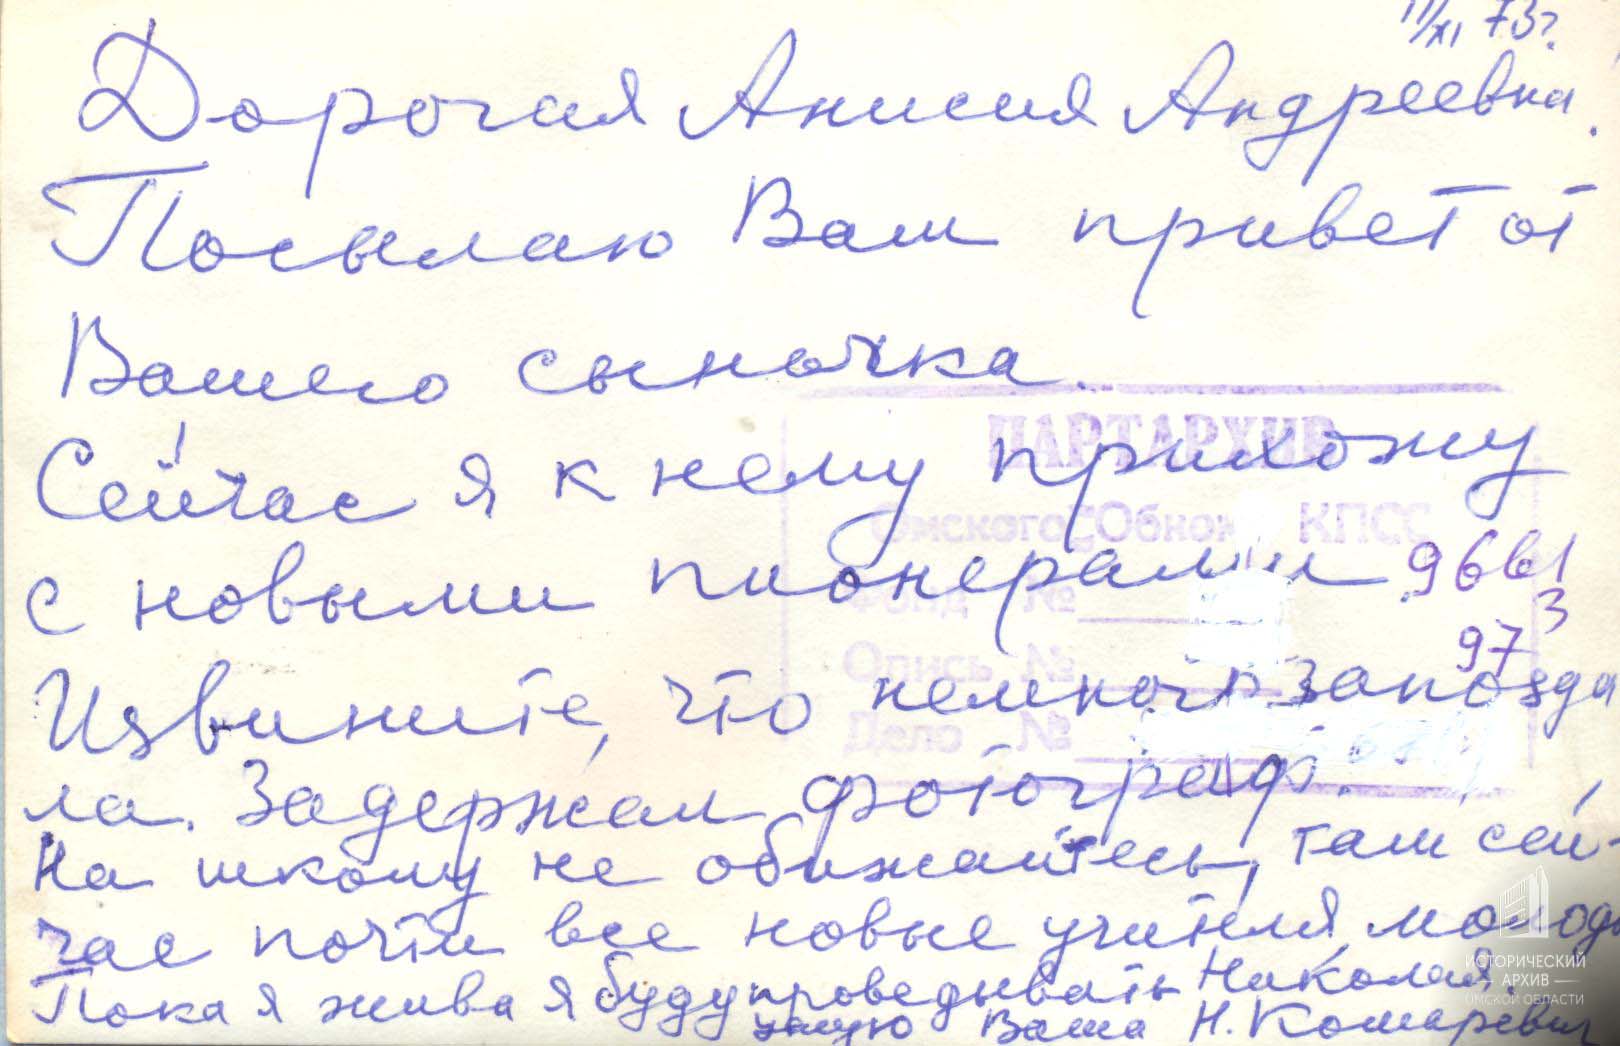 11/XI 73г.
Дорогая Анисия Андреевна.
Посылаю Вам привет от
Вашего сыночка.
ПАРТАРХИВ
Сейчас я к нему прихожу
Омского Обкома КПСС
с новыми пионерами 9661
Фонд №
3
97
Опись №
Извините, что немного запозда
Дело №
ла. Задержал фотограф.
На школу не обижайтесь, там сей-
час почти все новые учителя, молоды
Пока я жива я буду проведывать Николая.
целую Ваша Н. Комаревич
ИСТОРИЧЕСКИЙ
АРХИВ
ОМСКОЙ ОБЛАСТИ